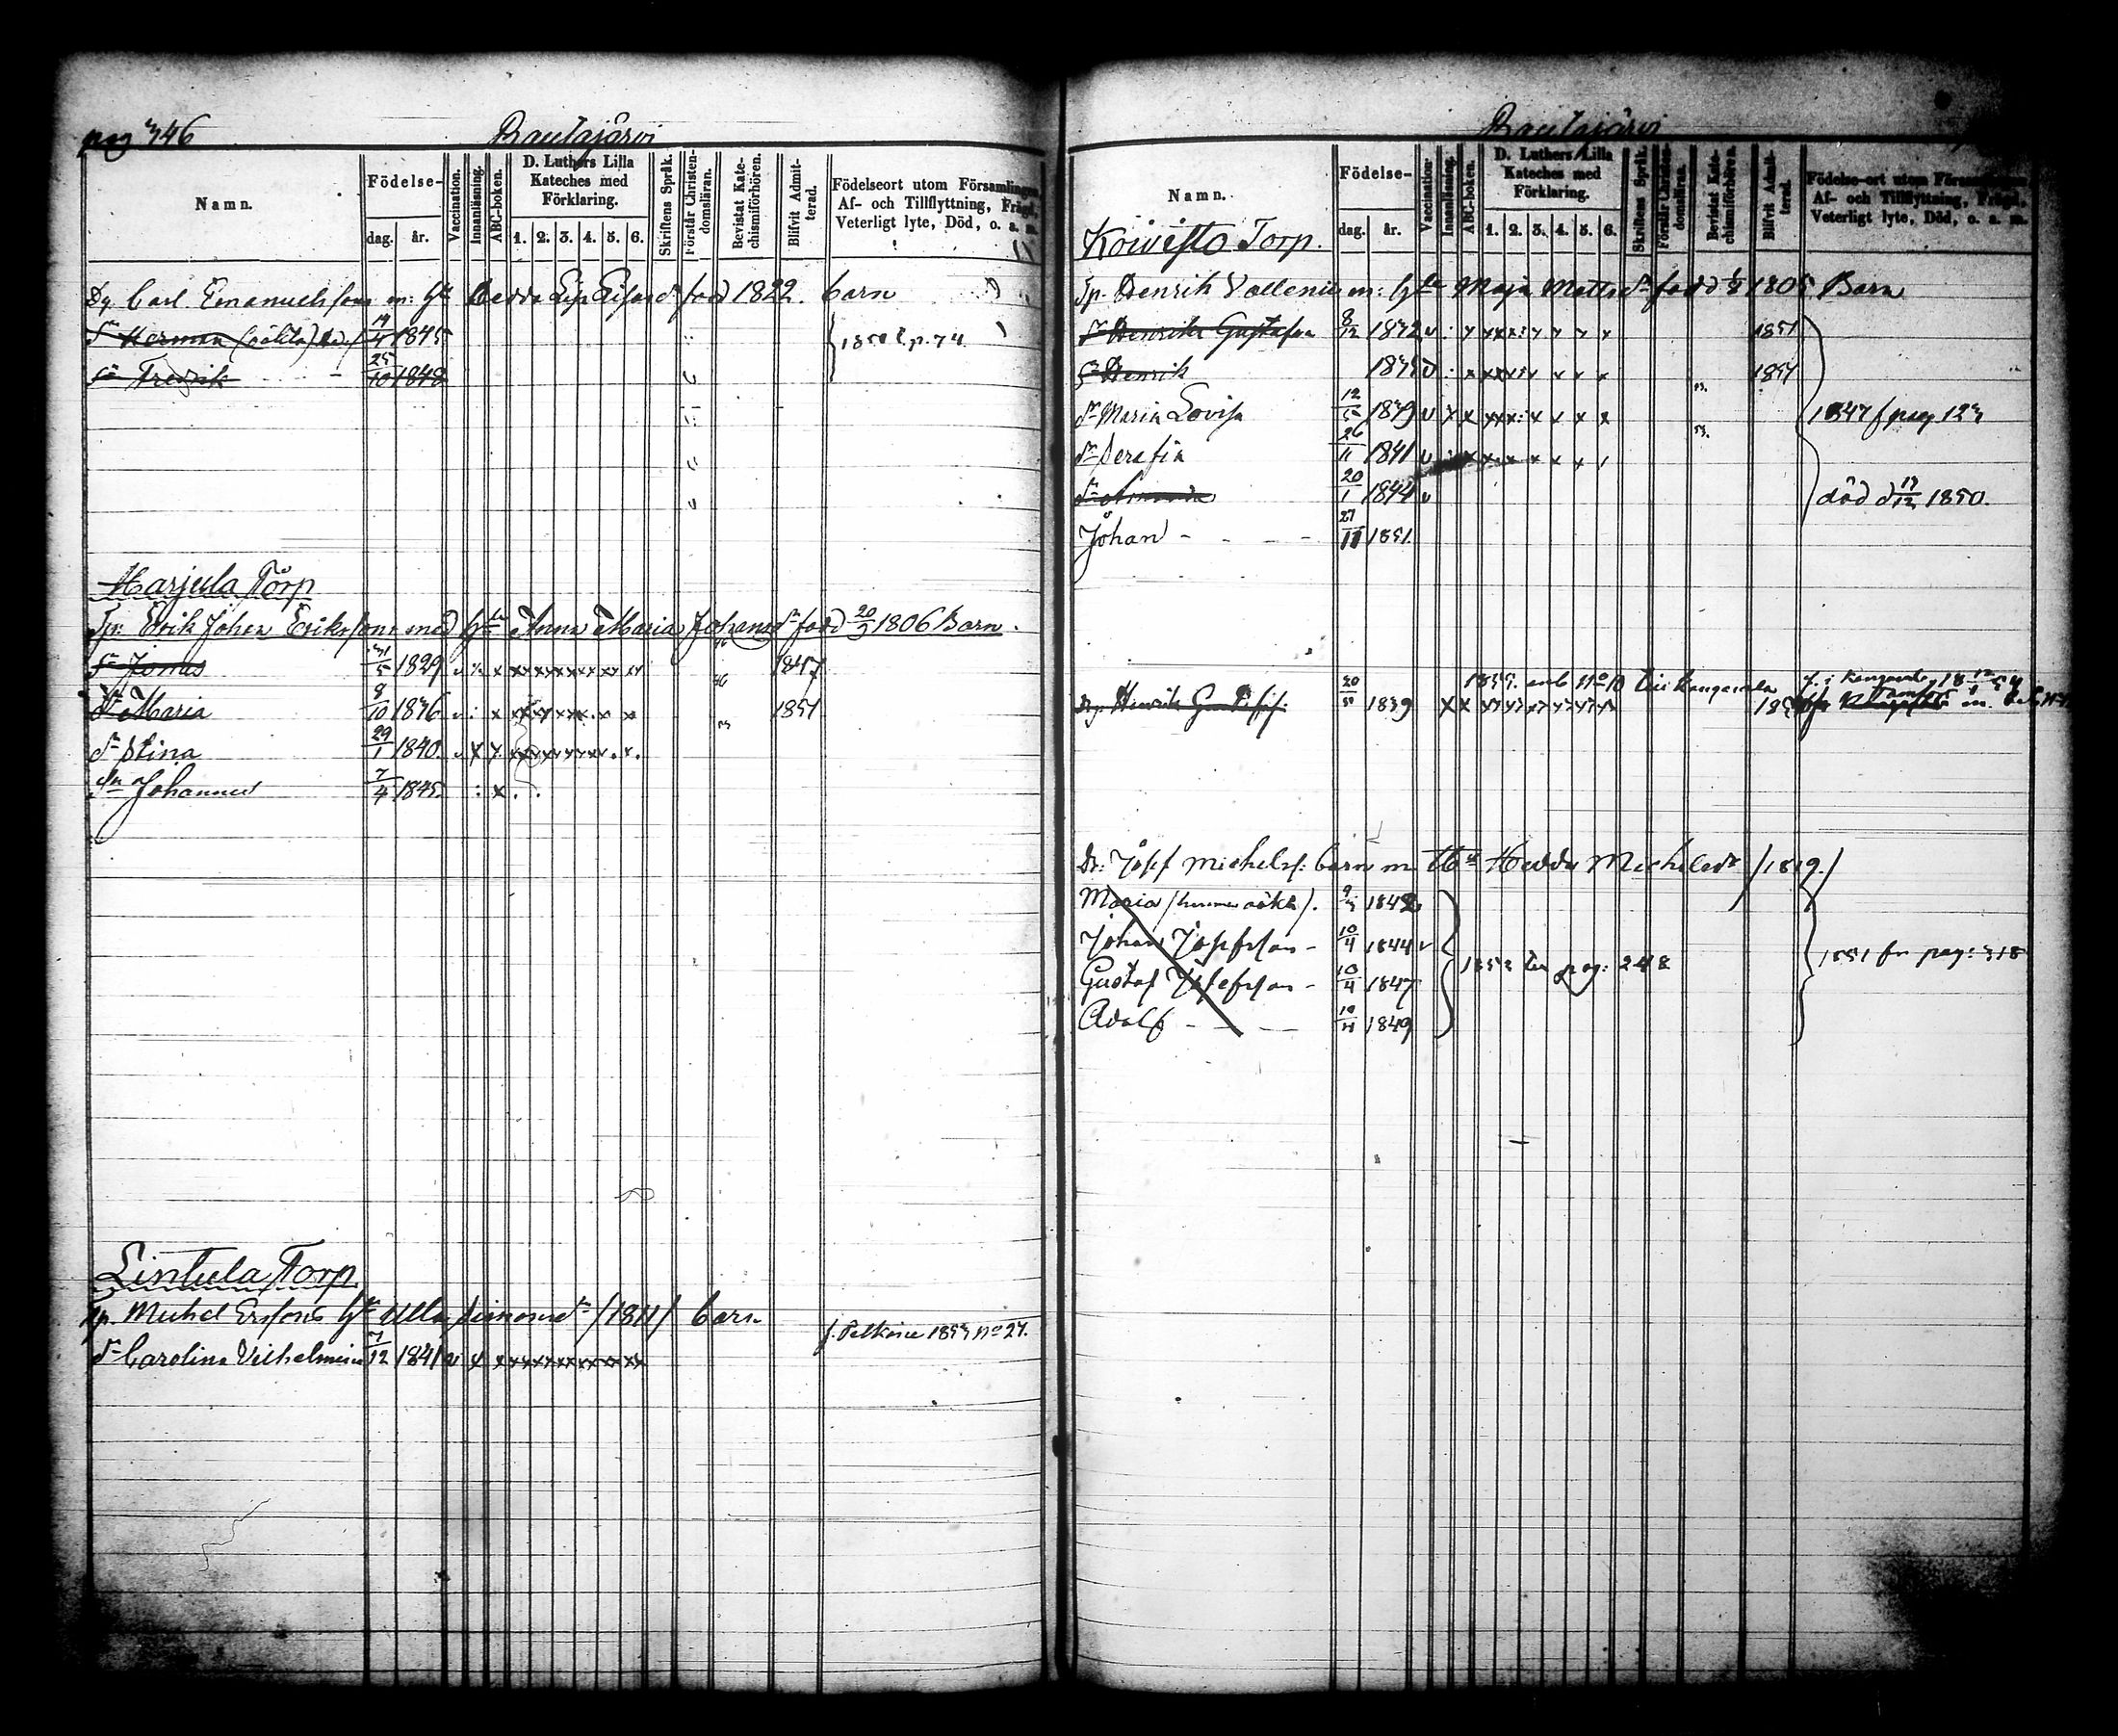 pag 346 Rautajärvi
Namn. Födelse- dag. år. Vaccination. Innanläsning. ABC-boken. D. Luthers Lilla Kateches med Förklaring. 1. 2. 3. 4. 5. 6. Skriftens Språk. Förstår Christendomsläran. Bevistat Katechismiförhören. Blifvit Admitterad. Födelseort utom Församlingen, Af- och Tillflyttning, Frägd, Veterligt lyte, Död, o. a. m.
Dr. Carl Emanuelssons m: Hu Hedda Lisa född 1822. barn
Sn Herman 4 1845
1850 t. p. 74
Sn Fredrik 25/10 1848
Marjula Torp
Tpr. Erik Johan Erikssons med Hu Anna Maria Johansdr född 1806 Barn.
Sn Jonas 1829 1847
Dr Maria 8/10 1836 1851
Dr Stina 29/1 1840
Sn Johannes 7/4 1845
Lintula Torp.
Tp. Michel Ersons Hu Ulla Simonsdr /1811/ barn
f. Pelkäne 1853 No 27.
Dr Carolina Vilhelmina 7/12 1841
Rautajärvi
Namn. Födelse- dag. år. Vaccination. Innanläsning. ABC-boken. D. Luthers Lilla Kateches med Förklaring. 1. 2. 3. 4. 5. 6. Skriftens Språk. Förstår Christendomsläran. Bevistat Katechismiförhören. Blifvit Admitterad. Födelse-ort utom Församlingen, Af- och Tillflyttning, Frägd, Veterligt lyte, Död, o. a. m.
Koivisto Torp.
Tp. Henrik Vallenius m: Hu Maja Mattsdr född 1805 Barn
Henrik Gustafson 8/12 1832 1851
Sn Henrik 1835 1851
Dr Maria Lovisa 12/5 1839 1847 f pag 123
Dr Serafia 26/11 1841
Dr Amanda 20/1 1844 död d 1850.
Johan 27/11 1851
1855. enl No 10 till Kangasala
Henrik Gust 20/5 1839
Dr: Josef Michelss: barn m Hu Hedda Michelsdr /1819./
Maria 1842
Johan Josefsson 10/4 1844
1853 till pag: 248
1851 fr pag: 318
Gustaf Josefsson 10/4 1847
Adolf 1849